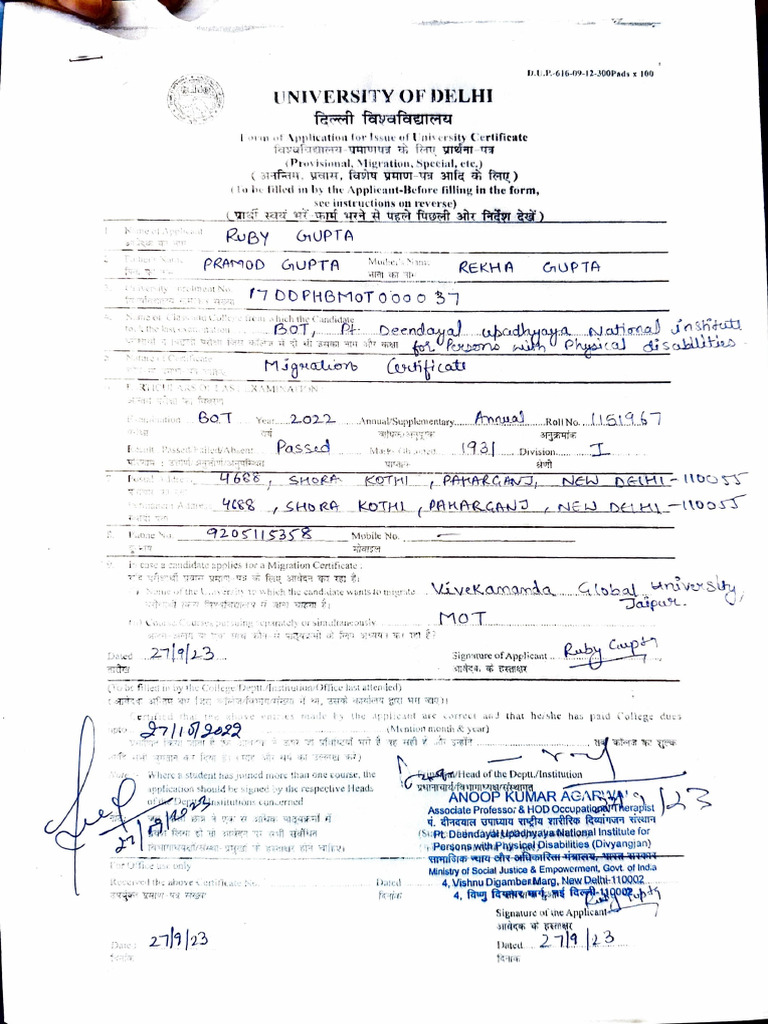 D.U.P.-616-09-12-300Pads x 100
UNIVERSITY OF DELHI
दिल्ली विश्वविद्यालय
Form of Application for Issue of University Certificate
विश्वविद्यालय-प्रमाणपत्र के लिए प्रार्थना-पत्र
(Provisional, Migration, Special, etc.)
(अनन्तिम, प्रवास, विशेष प्रमाण-पत्र आदि के लिए)
(To be filled in by the Applicant-Before filling in the form,
see instructions on reverse)
(प्रार्थी स्वयं भरें फार्म भरने से पहले पिछली ओर निर्देश देखें)
1. Name of Applicant RUBY GUPTA
आवेदक का नाम
2. Father's Name PRAMOD GUPTA Mother's Name REKHA GUPTA
पिता का नाम माता का नाम
3. University Enrolment No. 17DDPHBMOT00037
4. Name of Class and College from which the Candidate
took the last examination BOT, Pt. Deendayal upadhyaya National institute
for Persons with Physical disabilities.
5. Nature of Certificate Migration Certificate
6. PARTICULARS OF LAST EXAMINATION
Examination BOT Year 2022 Annual/Supplementary Annual Roll No. 1151967
कक्षा वर्ष वार्षिक/अनुपूरक अनुक्रमांक
Result: Passed/Failed/Absent Passed Marks Obtained 1931 Division I
परिणाम : उत्तीर्ण/अनुत्तीर्ण/अनुपस्थित प्राप्तांक श्रेणी
7. Postal Address 4688, SHORA KOTHI, PAHARGANJ, NEW DELHI-110055
Permanent Address 4688, SHORA KOTHI, PAHARGANJ, NEW DELHI-110055
8. Phone No. 9205115358 Mobile No. —
दूरभाष मोबाइल
9. In case a candidate applies for a Migration Certificate :
यदि परीक्षार्थी प्रवास प्रमाण-पत्र के लिए आवेदन कर रहा है।
Name of the University to which the candidate wants to migrate Vivekananda Global University,
Jaipur.
Course/Courses pursuing separately or simultaneously MOT
Dated 27/9/23 Signature of Applicant Ruby Gupta
तारीख आवेदक के हस्ताक्षर
(To be filled in by the College Deptt./Institution/Office last attended)
Certified that the above entries made by the applicant are correct and that he/she has paid College dues
upto 27/10/2022 (Mention month & year)
Note:- Where a student has joined more than one course, the
application should be signed by the respective Heads
of the Deptt./Institutions concerned
27/9/2023
Principal/Head of the Deptt./Institution
प्रधानाचार्य/विभागाध्यक्ष/संस्थागत
27/9/23
ANOOP KUMAR AGARWAL
Associate Professor & HOD Occupational Therapist
पं. दीनदयाल उपाध्याय राष्ट्रीय शारीरिक दिव्यांगजन संस्थान
Pt. Deendayal Upadhyaya National Institute for
Persons with Physical Disabilities (Divyangjan)
सामाजिक न्याय और अधिकारिता मंत्रालय, भारत सरकार
Ministry of Social Justice & Empowerment, Govt. of India
4, Vishnu Digamber Marg, New Delhi-110002
4, विष्णु दिगम्बर मार्ग, नई दिल्ली-110002
For Office use only
Received the above Certificate No. Dated
उपर्युक्त प्रमाण-पत्र संख्या दिनांक
Ruby Gupta
Signature of the Applicant
आवेदक के हस्ताक्षर
Date : 27/9/23 Dated 27/9/23
दिनांक दिनांक